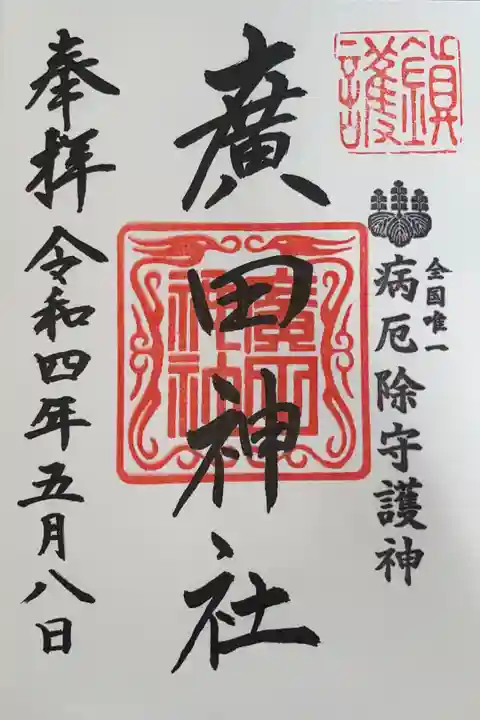 鎮護
全国唯一
病厄除守護神
廣田神社
奉拝 令和四年五月八日